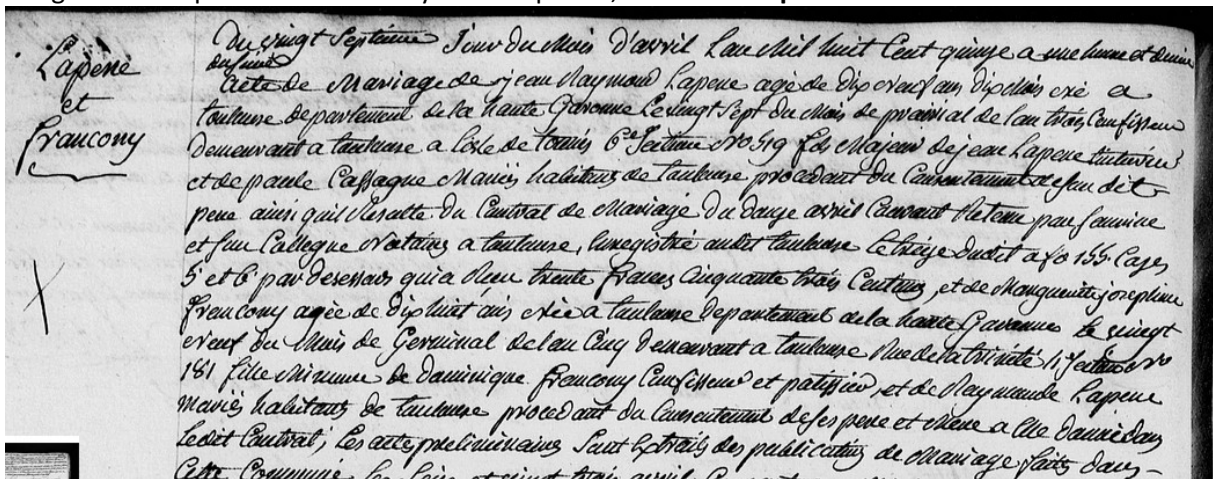 Lapene
et
francony
Du vingt Septieme Jour du Mois D'avril L'an Mil huit Cent quinze a une heure et demie
du soir
Acte de Mariage de jean Raymond Lapene agé de Dix neuf ans Dix Mois né a
toulouse departement de la haute Garonne Le vingt Sept du Mois de prairial de l'an trois Confiseur
Demeurant a toulouse a l'isle de tounis 6e Section No 519 fils Majeur de jean Lapene
et de paule Cassagne Mariés habitans de toulouse procedant du Consentement de son dit
pere ainsi qu'il Resulte du Contrat de Mariage du douze avril Courant Retenu par
et son Collegue Notaires a toulouse, Enregistré audit toulouse Le treize dudit a fo 155 Cases
5 et 6 par qui a Recu trente francs Cinquante trois Centimes, et de Marguerite josephine
francony agée de Dix huit ans née a toulouse departement de la haute Garonne le vingt
neuf du Mois de Germinal de l'an Cinq Demeurant a toulouse Rue de la trinité 4e Section No
181 fille Mineure de Dominique francony Confiseur et patissier, et de Raymonde Lapene
Mariés habitans de toulouse procedant du Consentement de ses pere et Mere a Elle donné dans
Ledit Contrat; Les actes preliminaires Sont Extraits des publications de Mariage faits dans
Cette Commune Les Seize et vingt trois avril